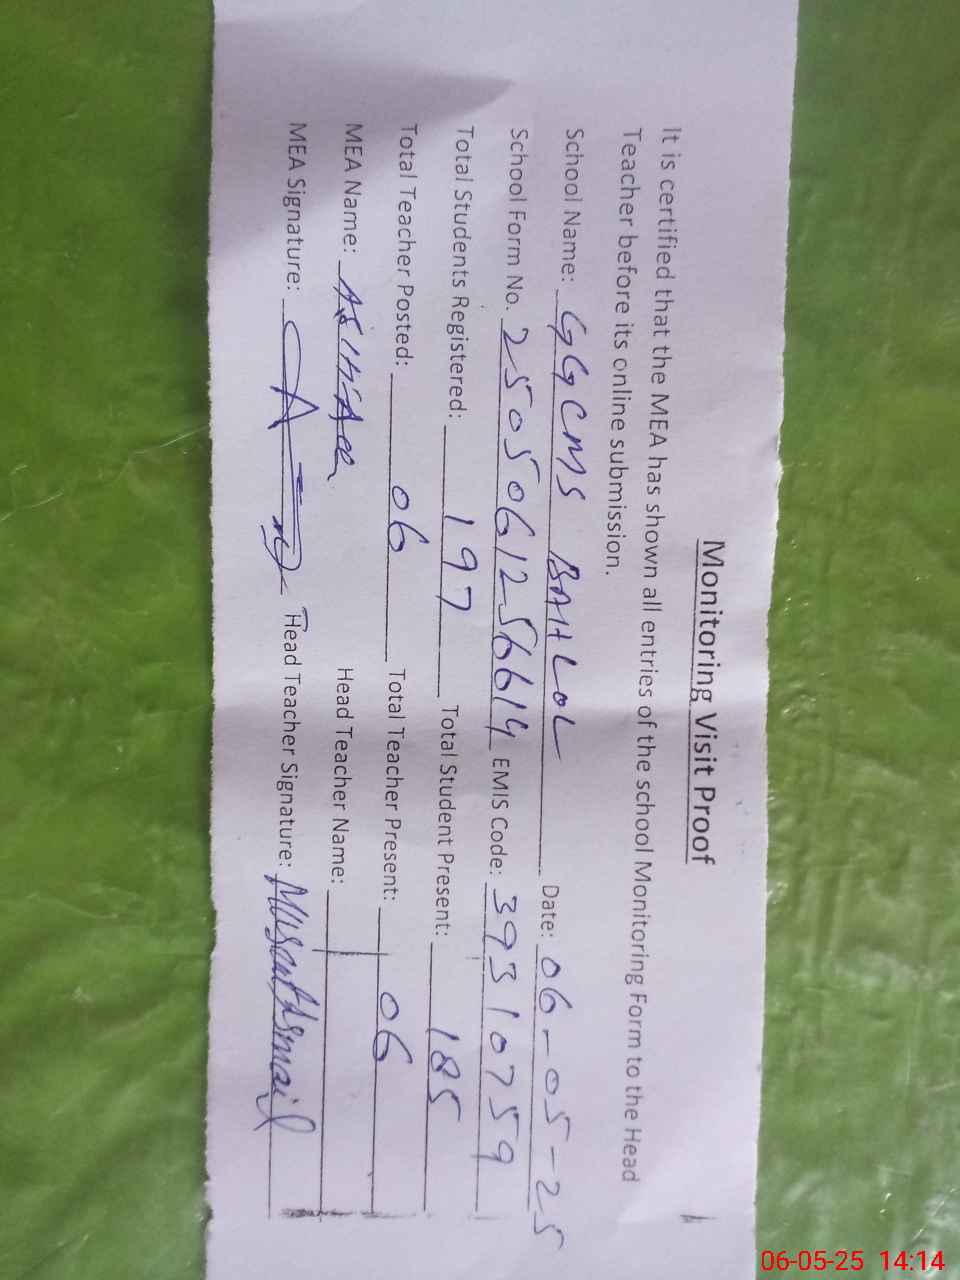 Monitoring Visit Proof
It is certified that the MEA has shown all entries of the school Monitoring Form to the Head
Teacher before its online submission.
School Name: GGCMS BAHLOL Date: 06-05-25
School Form No. 2505061256614 EMIS Code: 39310759
Total Students Registered: 197 Total Student Present: 185
Total Teacher Posted: 06 Total Teacher Present: 06
MEA Name: Head Teacher Name:
MEA Signature: Head Teacher Signature: Ismail
06-05-25 14:14